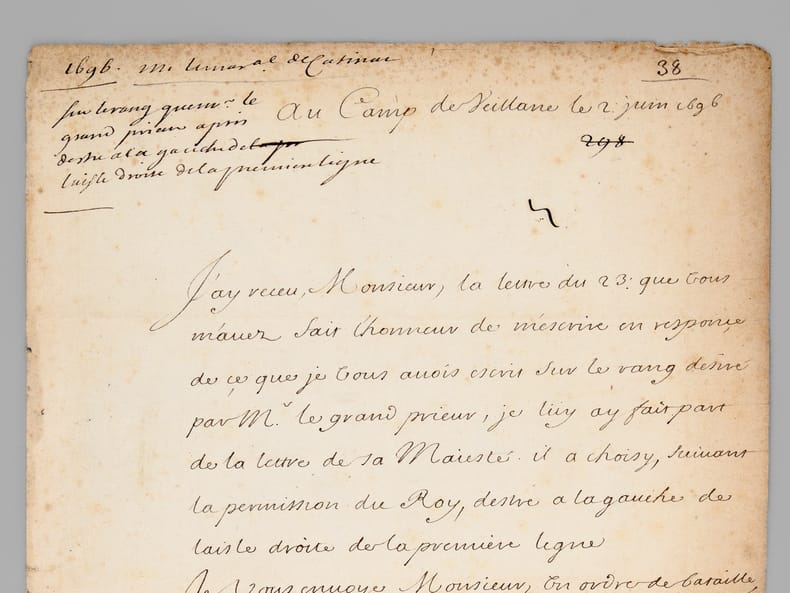 1696. Mr le marāl de Catinat
38
sur le rang que mr. le
grand prieur apres
destre a la gauche de
laisle droite de la premiere ligne
Au Camp de Veillane le 2. juin 1696
298
J'ay receu, Monsieur, la lettre du 23: que Vous
m'avez fait l'honneur de m'escrire en responçe
de çe que je Vous avois escrit sur le rang desiré
par Mr. le grand prieur, je luy ay fait part
de la lettre de sa Maiesté. il a choisy, suivant
la permission du Roy, destre a la gauche de
laisle droite de la premiére ligne
Je Vous envoye Monsieur, Un ordre de bataille,